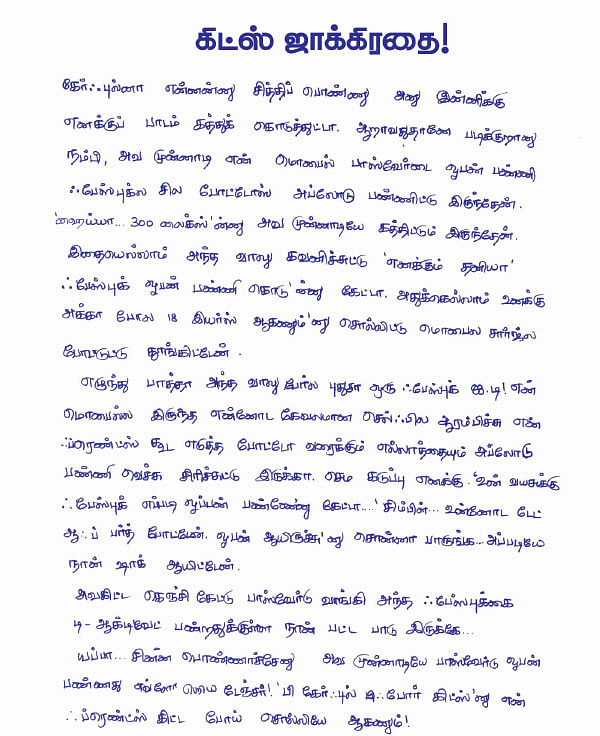 கிட்ஸ் ஜாக்கிரதை!
கேர்ஃபுல்னா என்னன்னு சித்திப் பொண்ணு அனு இன்னிக்கு
எனக்குப் பாடம் கத்துக் கொடுத்துட்டா. ஆறாவதுதானே படிக்குறானு
நம்பி, அவ முன்னாடி என் மொபைல் பாஸ்வேர்டை ஓபன் பண்ணி
ஃபேஸ்புக்ல சில போட்டோஸ் அப்லோடு பண்ணிட்டு இருந்தேன்.
'ஹைய்யா... 300 லைக்ஸ்'ன்னு அவ முன்னாடியே கத்திட்டும் இருந்தேன்.
இதையெல்லாம் அந்த வாலு கவனிச்சுட்டு 'எனக்கும் தனியா'
ஃபேஸ்புக் ஓபன் பண்ணி கொடு'ன்னு கேட்டா. அதுக்கெல்லாம் உனக்கு
அக்கா போல 18 இயர்ஸ் ஆகணும்'னு சொல்லிட்டு மொபைல சார்ஜ்ல
போட்டுட்டு தூங்கிட்டேன்.
எழுந்து பாத்தா அந்த வாலு பேர்ல புதுசா ஒரு ஃபேஸ்புக் ஐ.டி! என்
மொபைல்ல இருந்த என்னோட கேவலமான செல்ஃபில ஆரம்பிச்சு என்
ஃப்ரெண்ட்ஸ் கூட எடுத்த போட்டோ வரைக்கும் எல்லாத்தையும் அப்லோடு
பண்ணி வெச்சு சிரிச்சுட்டு இருக்கா. செம கடுப்பு எனக்கு. 'உன் வயசுக்கு
ஃபேஸ்புக் எப்படி ஓப்பன் பண்ணே'ன்னு கேட்டா...' சிம்பிள்... உன்னோட டேட்
ஆஃப் பர்த் போட்டேன். ஓபன் ஆயிருச்சு'னு சொன்னா பாருங்க... அப்படியே
நான் ஷாக் ஆயிட்டேன்.
அவகிட்ட கெஞ்சி கேட்டு பாஸ்வேர்டு வாங்கி அந்த ஃபேஸ்புக்கை
டி-ஆக்டிவேட் பண்றதுக்குள்ள நான் பட்ட பாடு இருக்கே...
யப்பா... சின்ன பொண்ணாச்சேனு அவ முன்னாடியே பாஸ்வேர்டு ஓபன்
பண்ணது எவ்ளோ டேஞ்சர்! 'பி கேர்ஃபுல் ஃபோர் கிட்ஸ்'னு என்
ஃப்ரெண்ட்ஸ் கிட்ட போய் சொல்லியே ஆகணும்!